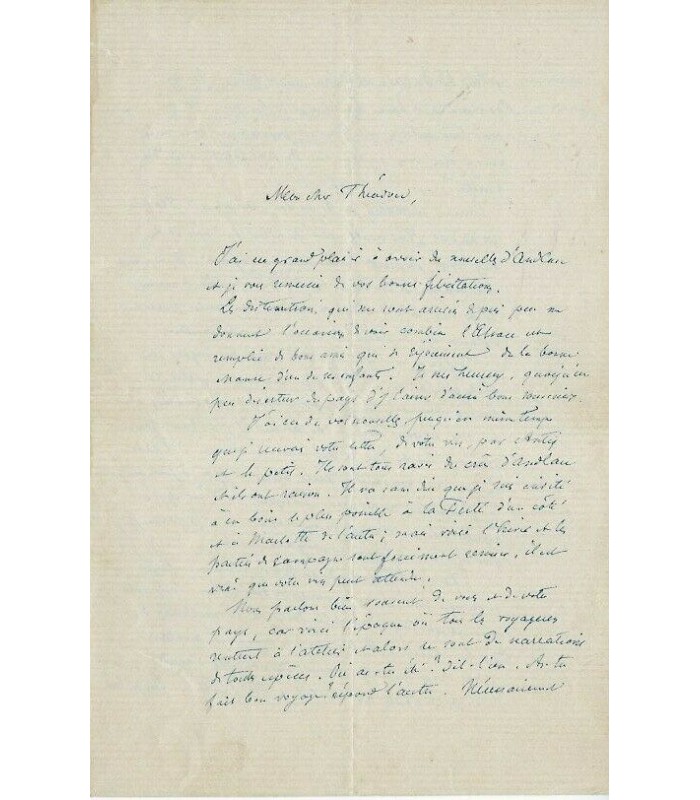 Mon cher Théodore,
J'ai eu grand plaisir à avoir des nouvelles d'Andlau
et je vous remercie de vos bonnes félicitations.
Les distinctions qui me sont arrivées depuis peu me
donnent l'occasion de voir combien l'Alsace est
remplie de bons amis qui se réjouissent de la bonne
d'un de ses enfants. Je suis heureux, quoiqu'un
peu déserteur du pays d'y laisser d'aussi bons souvenirs.
J'ai eu de vos nouvelles presqu'en même temps
que je recevais votre lettre, de votre vin, par
et le petit. Ils sont tous ravis du crû d'Andlau
et ils ont raison. Il va sans dire que je suis invité
à en boire le plus possible à la Ferté d'un côté
et à Marlotte de l'autre ; mais voici l'hiver et les
parties de campagne sont forcément remises, il est
vrai que votre vin peut attendre.
Nous parlons bien souvent de vous et de votre
pays, car voici l'époque où tous les voyageurs
rentrent à l'atelier et alors ce sont des narrations
de toutes espèces. Où as-tu été ? dit l'un. As-tu
fait bon voyage ? répond l'autre.